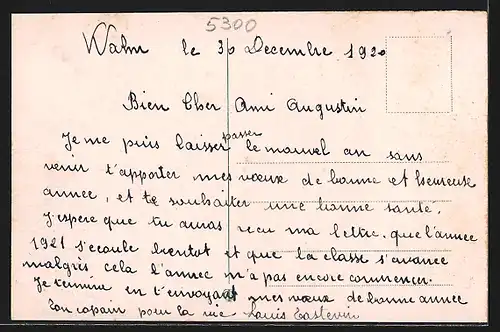 5300
Walm le 30 Decembre 1920
Bien Cher Ami Augustin
Je me puis laisser passer le nouvel an sans
venir t'apporter mes vœux de bonne et heureuse
année, et te souhaiter une bonne santé.
J'espère que tu auras reçu ma lettre. que l'année
1921 s'ecoule bientot et que la classe s'avance
malgrès cela l'année n'a pas encore commencer.
Je termine en t'envoyant mes vœux de bonne année
Ton copain pour la vie Louis